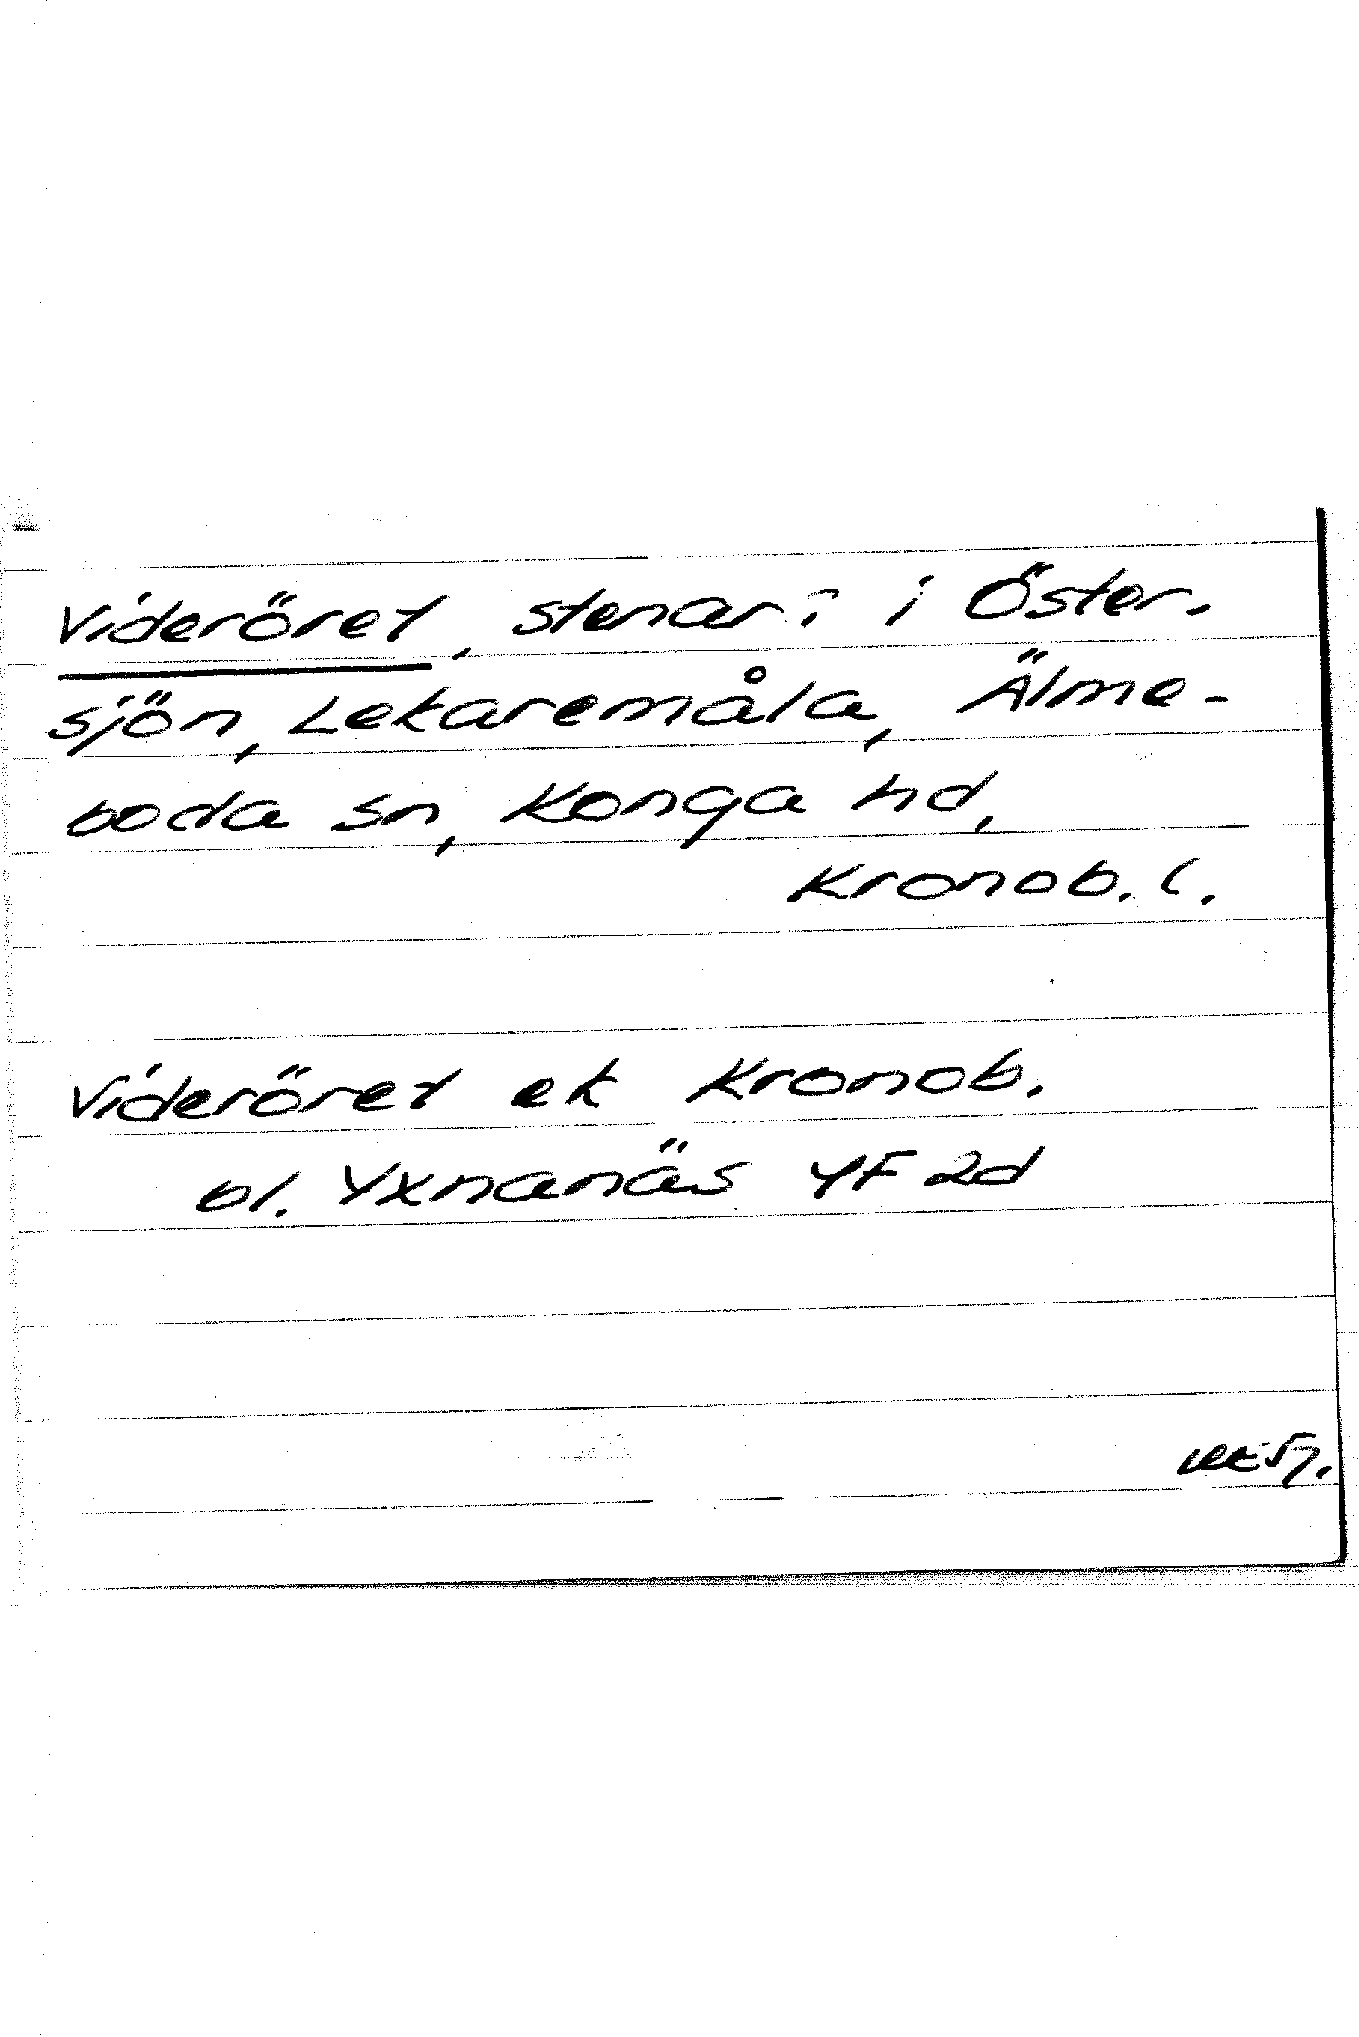 Videröret, stenar i Öster-
sjön, Lekaremåla, Älme-
boda sn, Konga hd,
Kronob. l.
Videröret ek Kronob.
bl. Yxnanäs 4F 2d